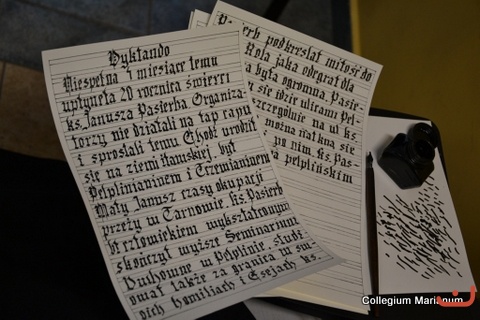 Dyktando
Niespełna 4 miesiące temu
upłynęła 20 rocznica śmierci
ks. Janusza Pasierba. Organiza-
torzy nie działali na łap rapu
i sprostali temu. Choć urodził
się na ziemi
był
Pelplinianinem i Tczewianinem
Mały Janusz czasy okupacji
przeżył w Tarnowie. ks. Pasierb
był człowiekiem wykształconym
skończył wyższe Seminarium
Duchowne w Pelplinie, studi-
ował także za granicą w swo-
ich homiliach i Esejach ks.
Pasierb podkreślał miłość do
Rola jaką odegrał dla
a była ogromna. Pasie-
się idzie ulicami Pel-
szczególnie na ul ks
można natknąć się
po nim. ks. Pas-
a pelplińskim
Collegium Marianum